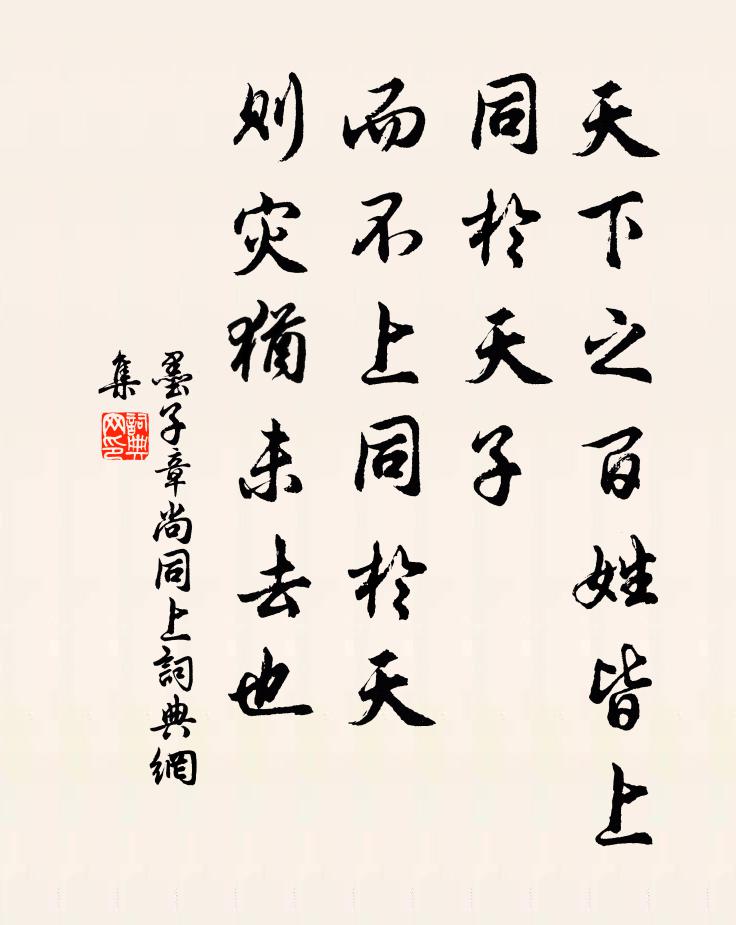 天下之百姓皆上
同於天子
而不上同於天
则灾犹未去也
墨子章尚同上詞典網
集
詞典
网印